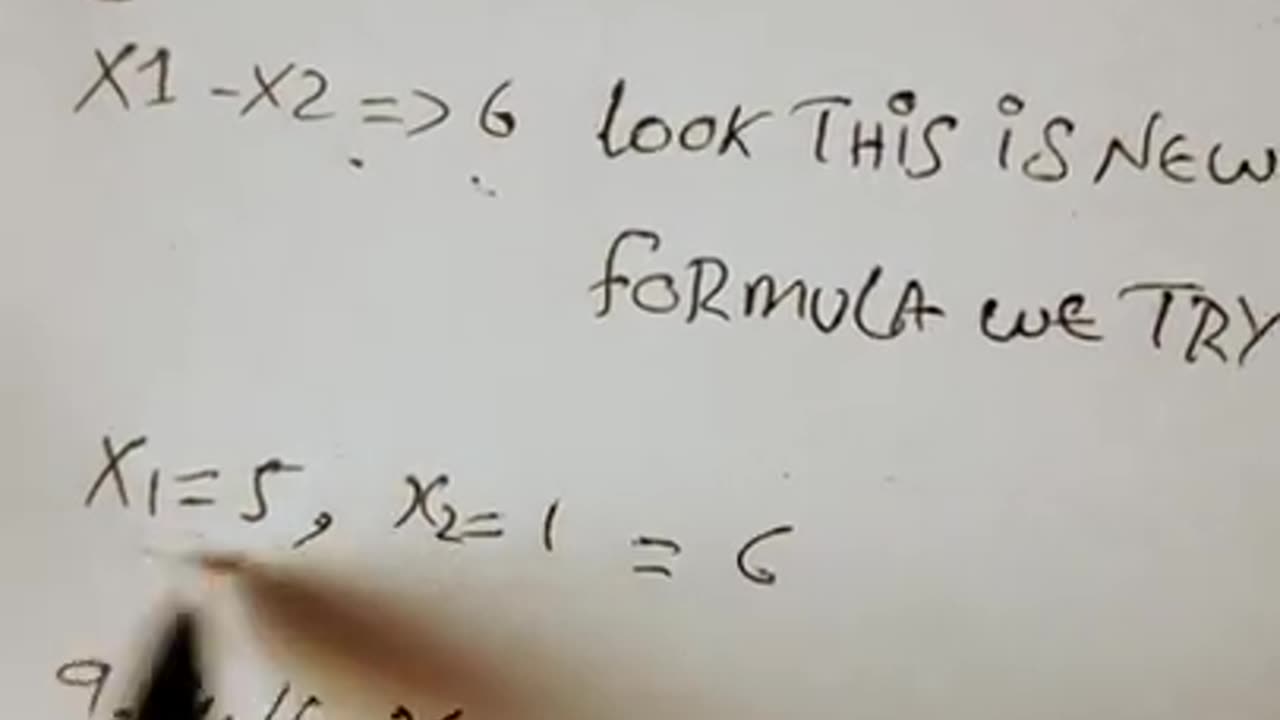 X1 -X2 => 6 LOOK THIS IS NEW
FORMULA WE TRY
X1 = 5, X2 = 1 = 6
9